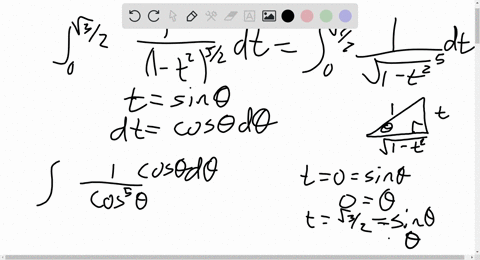 ∫₀^{√3/2} 1/(1-t²)^{5/2} dt = ∫₀^{√3/2} 1/√(1-t²)⁵ dt
t = sinθ
dt = cosθdθ
1 t
θ
√(1-t²)
∫ 1/cos⁵θ cosθdθ
t=0=sinθ
0=θ
t=√3/2=sinθ
θ